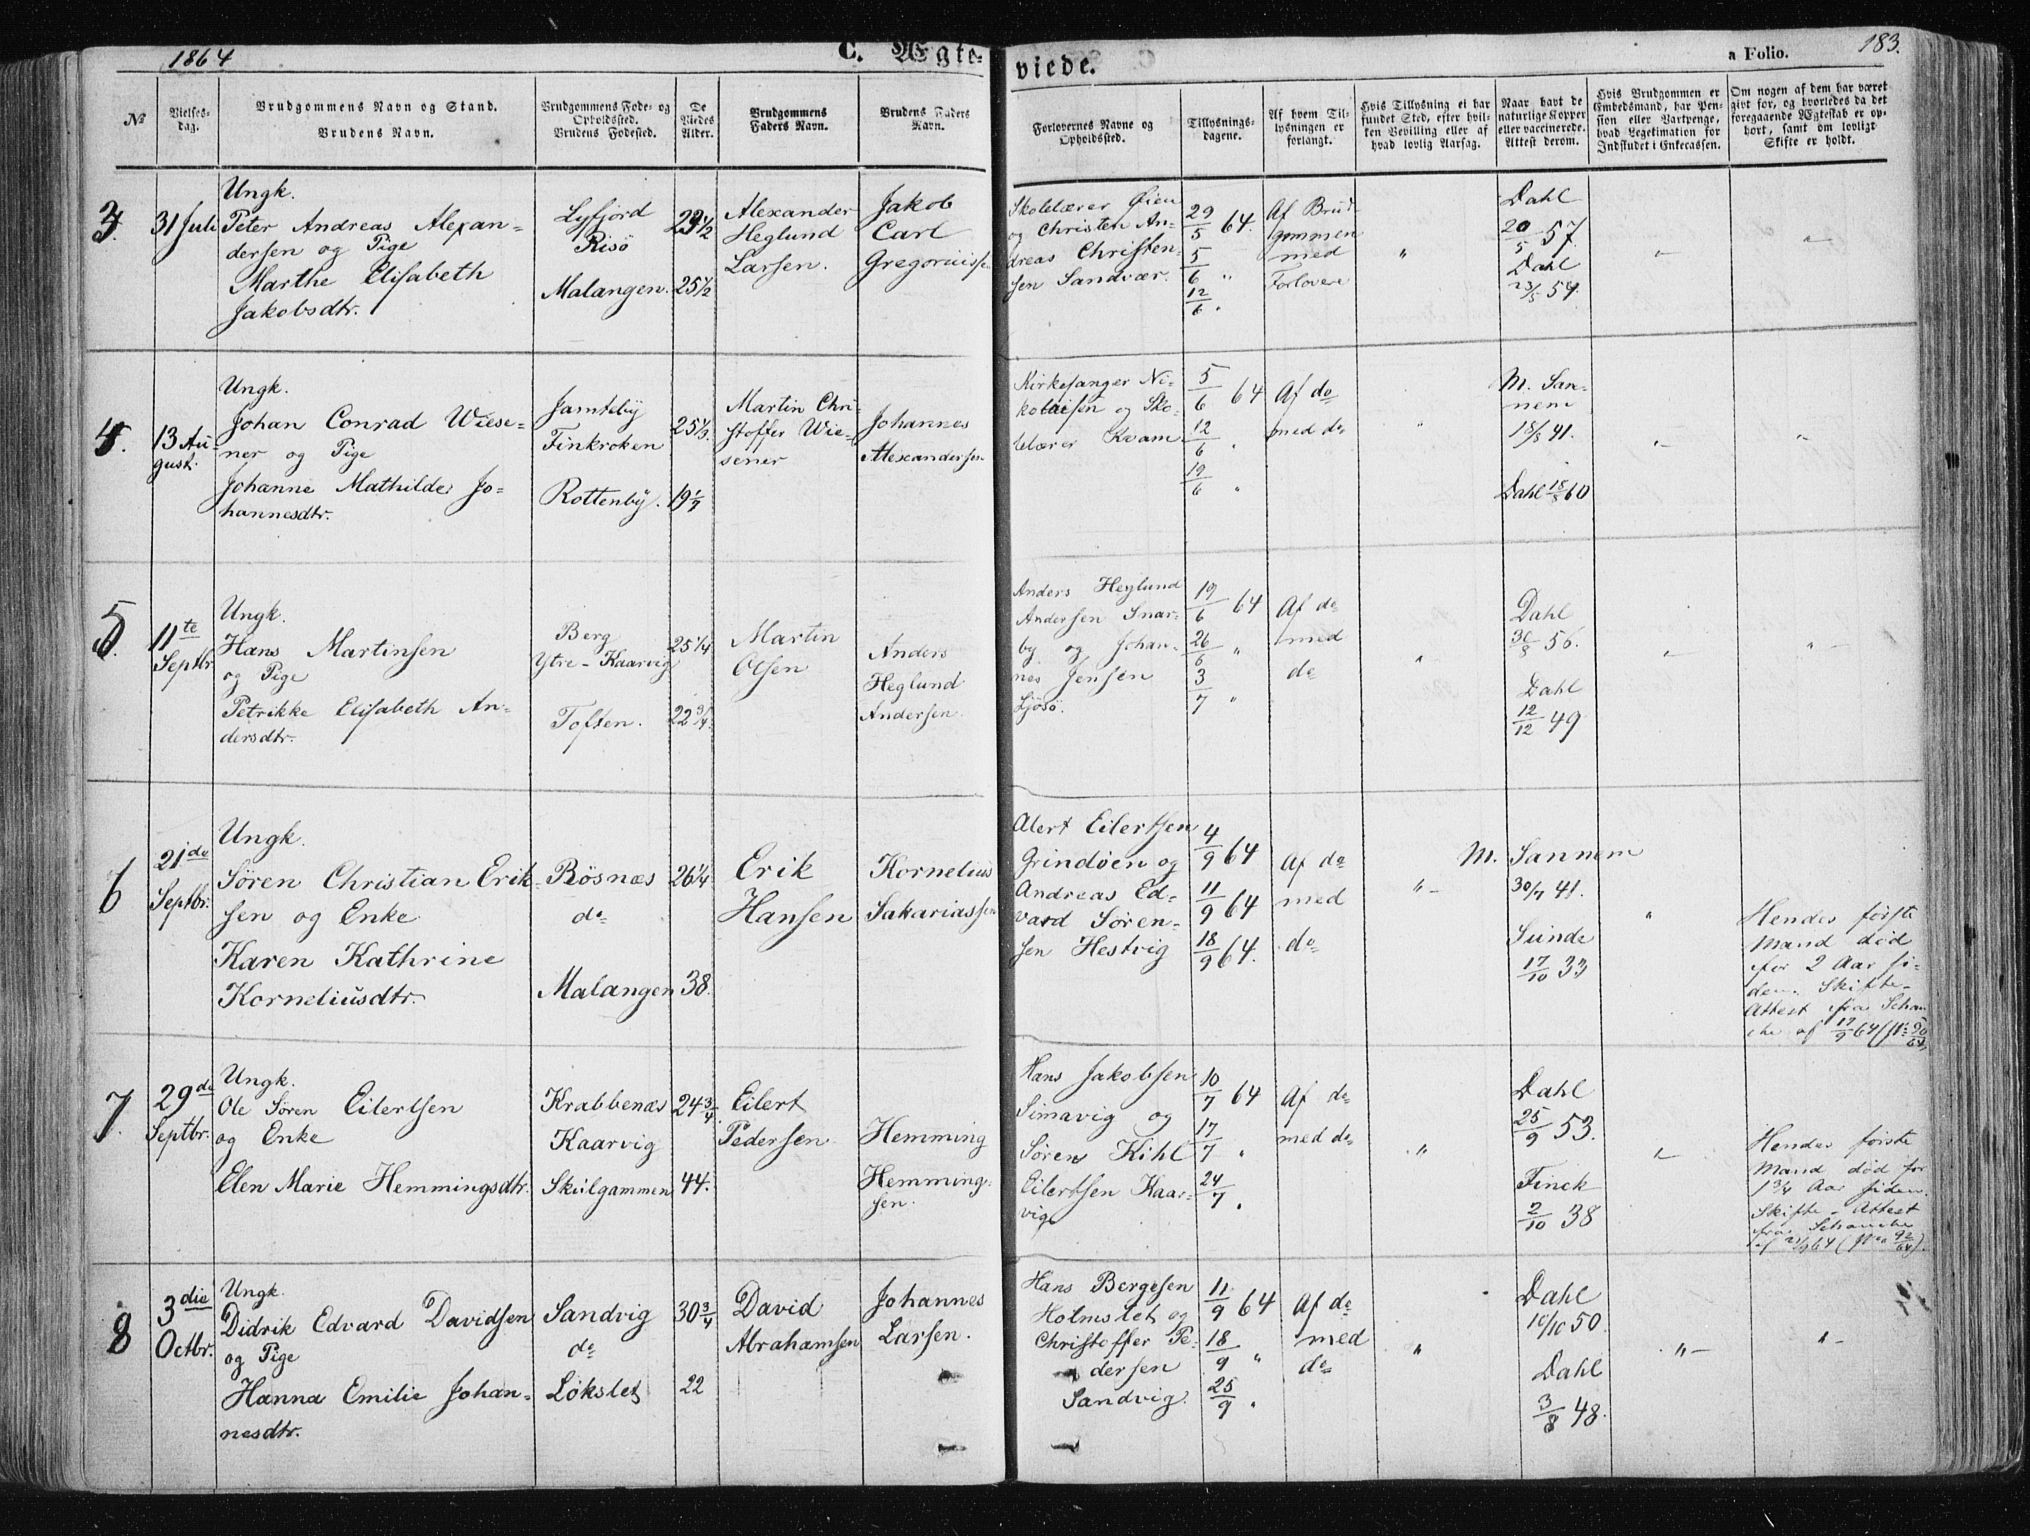 1864
C. Ægteviede.
a Folio.
183.
No
Vielsesdag.
Brudgommens Navn og Stand.
Brudens Navn.
Brudgommens Føde- og
Opholdssted.
Brudens Fødested.
De
Viedes
Alder.
Brudgommens
Faders Navn.
Brudens Faders
Navn.
Forlovernes Navne og
Opholdssted.
Tillysningsdagene.
Af hvem Tillysningen er
forlangt.
Hvis Tillysning ei har
fundet Sted, efter hvilken Bevilling eller af
hvad lovlig Aarsag.
Naar havt de
naturlige Kopper
eller vaccinerede.
Attest derom.
Hvis Brudgommen er
Embedsmand, har Pension eller Vartpenge,
hvad Legetimation for
Indskudet i Enkecassen.
Om nogen af dem har været
givt før, og hvorledes da det
foregaaende Ægteskab er ophørt, samt om lovligt
Skifte er holdt.
3.
31 Juli
Ungk.
Peter Andreas Alexan-
dersen og Pige
Marthe Elisabeth
Jakobsdtr.
Lyfjord
Risø
Malangen.
25 1/2
Alexander
Heglund
Larsen.
Jakob
Carl
Skolelærer Øien
og Christen An-
dreas Christen-
sen Sandvær.
29/5 64.
5/6 "
12/6 "
Af Brud-
gommen
med
Forlovere
"
Dahl
20/5 57.
Dahl
23/5 59.
4.
13 Au-
gust.
Ungk.
Johan Conrad Wiese-
ner og Pige
Johanne Mathilde Jo-
hannesdtr.
Jamteby
Finkroken
Rottenby.
25 1/2
Martin Chri-
stoffer Wie-
sener
Johannes
Alexandersen
Kirkesanger Ni-
kolaisen og Sko-
lelærer Kvam
5/6 64
12/6 "
19/6 "
Af do
med do
M. San-
nem
18/8 41.
Dahl 18/8 60
5.
11te
Septbr.
Ungk.
Hans Martinsen
og Pige
Petrikke Elisabeth An-
dersdtr.
Berg
Ytre-Kaarvig
Toften.
25 1/4
22 3/4
Martin
Olsen
Anders
Heglund
Andersen.
Anders Heglund
Andersen Snar-
by og Johan-
nes Jensen
Ljøsø.
19/6 64
26/6 "
3/7 "
Af do
med
do
Dahl
30/8 56.
Dahl
12/12 49
6
21de
Septbr.
Ungk.
Søren Christian Erik-
sen og Enke
Karen Kathrine
Korneliusdtr.
Røsnæs
do
Malangen
26 1/4
38.
Erik
Hansen
Kornelius
Sakariassen
Alert Eilertsen
Grindøen og
Andreas Ed-
vard Søren-
sen Hestvig
4/9 64
11/9 64
18/9 64.
Af do
med
do
M. Sannem
30/7 41.
Sunde
17/10 33
Hendes første
Mand død
for 2 Aar si-
den. Skifte-
Attest fra Schan
che af 17/9 64 (No 90/64)
7.
29de
Septbr.
Ungk.
Ole Søren Eilertsen
og Enke
Elen Marie Hemmingsdtr.
Krabbenæs
Kaarvig
Skulgammen
24 3/4
44.
Eilert
Pedersen
Hemming
Hemming-
sen.
Hans Jakobsen
Simavig og
Søren Kihl
Eilertsen Kaar-
vig
10/7 64
17/7 "
24/7 "
Af do
med do
Dahl
25/9 53.
Finck
2/10 38
Hendes første
Mand død for
1 3/4 Aar siden.
Skifte-Attest
fra Schanche
af 21/9 64 (No 92/64).
8
3die
Octbr.
Ungk.
Didrik Edvard Davidsen
og Pige
Hanna Emilie Johan-
nesdtr.
Sandvig
do
Løkslet
30 3/4
22
David
Abrahamsen
Johannes
Larsen.
Hans Bergesen
Holmslet og
Christoffer Pe-
dersen
Sandvig.
11/9 64
18/9 "
25/9 "
Af do
med
do
Dahl
10/10 50.
Dahl
3/8 48.